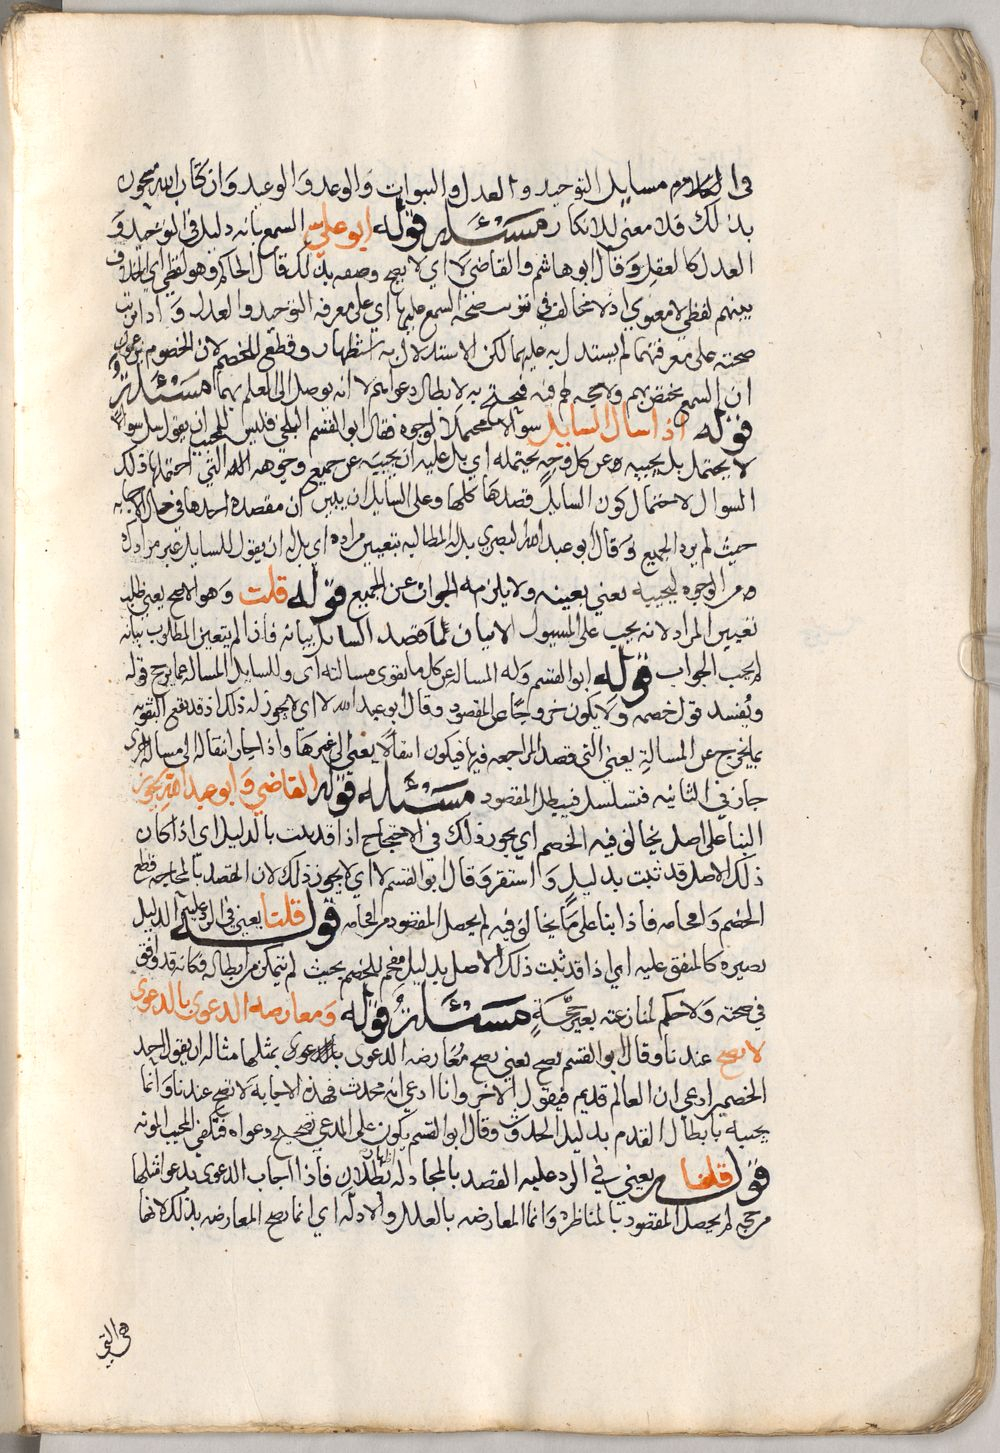 في الكلام مسايل التوحيد والعدل والنبوات والوعد والوعيد وان كتاب الله مشحون
بذلك فلا معنى للانكار مسئلة قوله ابو علي السمع بانه دليل في التوحيد و
العدل كالعقل وقال ابو هاشم والقاضي لا اي لا يصح وصفه بذلك قال الحاكم وهو لفظي اي الخلاف
بينهم لفظي لا معنوي اذ لا مخالف في صحة السمع عليها اي على معرفة التوحيد والعدل و اذا ترتب
صحته على معرفتهما لم يستدل به عليهما لكن الاستدلال به استظهار وقطع للخصم لان الخصوم يدعون
ان السمع يختص بهم ولا حجة لهم فيه فيحتج به لابطال دعواهم لا انه يوصل الى العلم بهما مسئلة
قوله اذا سال السايل سوالا محتملا لوجوه فقال ابو القسم البلخي فليس للمجيب ان يقول سل سوالا
لا يحتمل بل يجيبه عن كل وجه يحتمله اي بل عليه ان يجيبه عن جميع وجوهه التي احتملها ذلك
السوال لاحتمال كون السايل قصدها كلها وعلى السايل ان يبين ان مقصده احدها في حال الاجابه
حيث لم يرد الجميع وقال ابو عبد الله البصري بل له المطالبه بتعيين مراده اي بل له ان يقول للسايل عين مرادك
من الوجوه ليجيبه يعني بعينه ولا يلزمه الجواب عن الجميع قوله قلت وهو الاصح يعني طلب
تعيين المراد لانه يجب على المسيول الاتيان بما قصد السايل بيانه فاذا لم يتعين المطلوب بيانه
لم يجب الجواب قوله ابو القسم وله المسالة عن كل ما يقوي مسالته اي وللسايل المسالة عما يرجح قوله
ويفسد قول خصمه ولا يكون خروجا عن المقصود وقال ابو عبد الله لا اي لا يجوز له ذلك اذ قد تقع التقويه
بما يخرج عن المسالة يعني التي قصد المراجعه فيها فيكون انتقالا يعني الى غيرها واذا جاز انتقاله الى مسالة اخرى
جاز في الثانيه فتسلسل فيبطل المقصود مسئلة قوله القاضي وابو عبد الله يجوز
البنا على اصل يخالف فيه الخصم اي يجوز ذلك في الاحتجاج اذا قد ثبت بالدليل اي اذا كان
ذلك الاصل قد ثبت بدليل واستقر وقال ابو القسم لا اي لا يجوز ذلك لان القصد بالمحاجه قطع
الخصم وافحامه فاذا بنا على ما يخالف فيه لم يحصل المقصود من افحامه قوله قلنا يعني في الرد عليه الدليل
يصيره كالمتفق عليه اي اذا قد ثبت ذلك الاصل بدليل مفحم للخصم بحيث لم يتمكن من ابطاله فكانه قد وافق
في صحته ولا حكم لمنازعته بغير حجة مسئلة قوله ومعارضه الدعوى بالدعوى
لا تصح عندنا وقال ابو القسم تصح يعني تصح معارضه الدعوى بدعوى بمثلها مثاله ان يقول احد
الخصمين ادعي ان العالم قديم فيقول الاخر وانا ادعي انه محدث فهذه الاجابه لا تصح عندنا وانما
يجيبه بابطال القدم بدليل الحدوث وقال ابو القسم يكون على المدعي تصحيح دعواه فتكفي المجيب المونه
قوله قلنا يعني في الرد عليه القصد بالمجادلة اظهار بطلان فاذا اجاب الدعوى بدعوا مثلها
من حجه لم يحصل المقصود بالمناظره وانما المعارضه بالعلل والادله اي انما تصح المعارضه بذلك لانها
هي التي